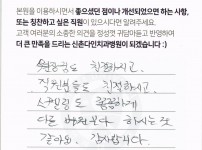 본원을 이용하시면서 좋으셨던 점이나 개선되었으면 하는 사항,
또는 칭찬하고 싶은 직원이 있으시다면 알려주세요.
고객 여러분의 소중한 의견을 정성껏 귀담아듣고 반영하여
더 큰 만족을 드리는 신촌다인치과병원이 되겠습니다 :)
원장님도 친절하시고
직원분들도 친절하시고
스케일링도 꼼꼼하게
다른 병원보다 하시는 것
같아요. 감사합니다.